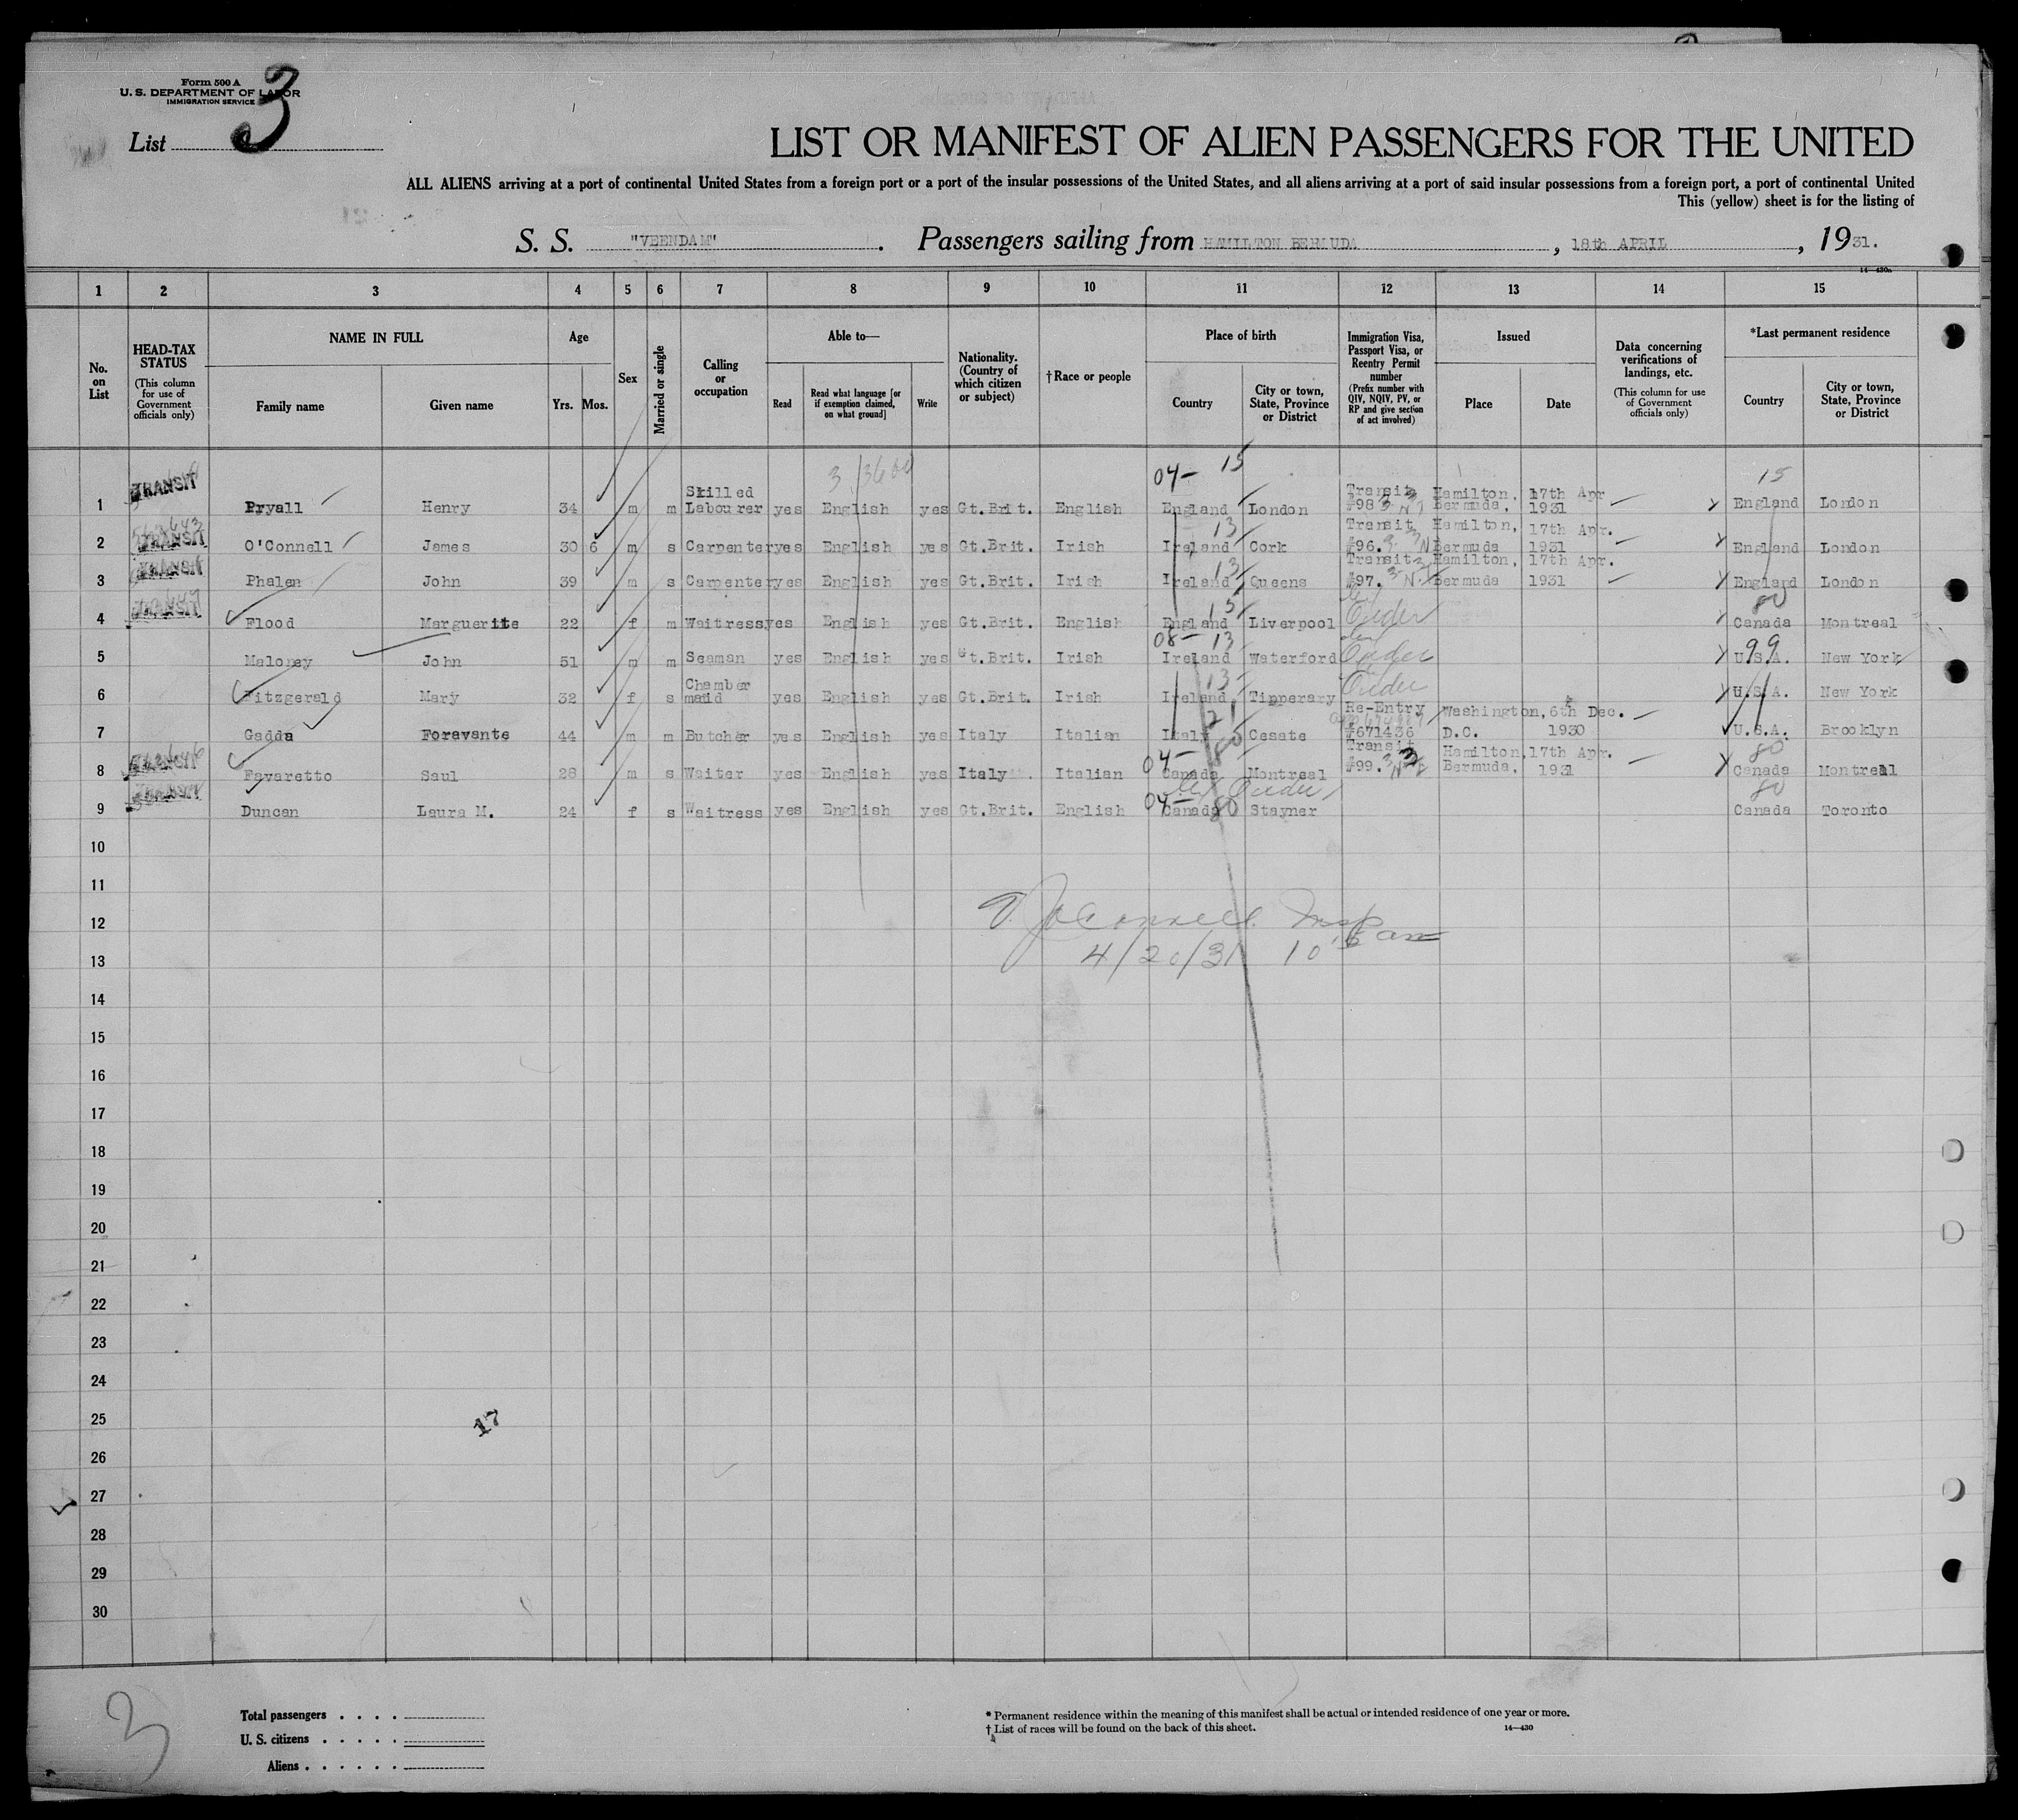 Form 500 A
U. S. DEPARTMENT OF LABOR
IMMIGRATION SERVICE
List 3
LIST OR MANIFEST OF ALIEN PASSENGERS FOR THE UNITED
ALL ALIENS arriving at a port of continental United States from a foreign port or a port of the insular possessions of the United States, and all aliens arriving at a port of said insular possessions from a foreign port, a port of continental United
This (yellow) sheet is for the listing of
S. S. "VEENDAM". Passengers sailing from HAMILTON BERMUDA, 18th APRIL, 1931.
14—430a
1 2 3 4 5 6 7 8 9 10 11 12 13 14 15
No. on List
HEAD-TAX STATUS (This column for use of Government officials only)
NAME IN FULL Family name Given name
Age Yrs. Mos.
Sex
Married or single
Calling or occupation
Able to— Read Read what language [or if exemption claimed, on what ground] Write
Nationality. (Country of which citizen or subject)
†Race or people
Place of birth Country City or town, State, Province or District
Immigration Visa, Passport Visa, or Reentry Permit number (Prefix number with QIV, NQIV, PV, or RP and give section of act involved)
Issued Place Date
Data concerning verifications of landings, etc. (This column for use of Government officials only)
*Last permanent residence Country City or town, State, Province or District
04— 15 15
1 TRANSIT Pryall Henry 34 m m Skilled Labourer yes English yes Gt.Brit. English England London Transit #98 Hamilton, Bermuda, 17th Apr 1931 England London
13
2 TRANSIT O'Connell James 30 6 m s Carpenter yes English yes Gt.Brit. Irish Ireland Cork Transit #96. Hamilton, Bermuda 17th Apr. 1931 England London
13
3 TRANSIT Phalen John 39 m s Carpenter yes English yes Gt.Brit. Irish Ireland Queens Transit #97. Hamilton, Bermuda 17th Apr. 1931 England London
15 80
4 TRANSIT Flood Marguerite 22 f m Waitress yes English yes Gt.Brit. English England Liverpool Order Canada Montreal
08— 13 99
5 Maloney John 51 m m Seaman yes English yes Gt.Brit. Irish Ireland Waterford Order U.S.A. New York
13
6 Fitzgerald Mary 32 f s Chamber maid yes English yes Gt.Brit. Irish Ireland Tipperary Order U.S.A. New York
21
7 Gadda Foravante 44 m m Butcher yes English yes Italy Italian Italy Cesate Re-Entry #671436 Washington, D.C. 6th Dec. 1930 U.S.A. Brooklyn
04— 80 80
8 Favaretto Saul 28 m s Waiter yes English yes Italy Italian Canada Montreal Transit #99. Hamilton, Bermuda, 17th Apr. 1931 Canada Montreal
Order
04— 80 80
9 Duncan Laura M. 24 f s Waitress yes English yes Gt.Brit. English Canada Stayner Canada Toronto
10
11
12
4/20/31 10
13
14
15
16
17
18
19
20
21
22
23
24
25
17
26
27
28
29
30
3
Total passengers . . . .
U. S. citizens . . . . .
Aliens . . . . . .
* Permanent residence within the meaning of this manifest shall be actual or intended residence of one year or more.
† List of races will be found on the back of this sheet.
14—430